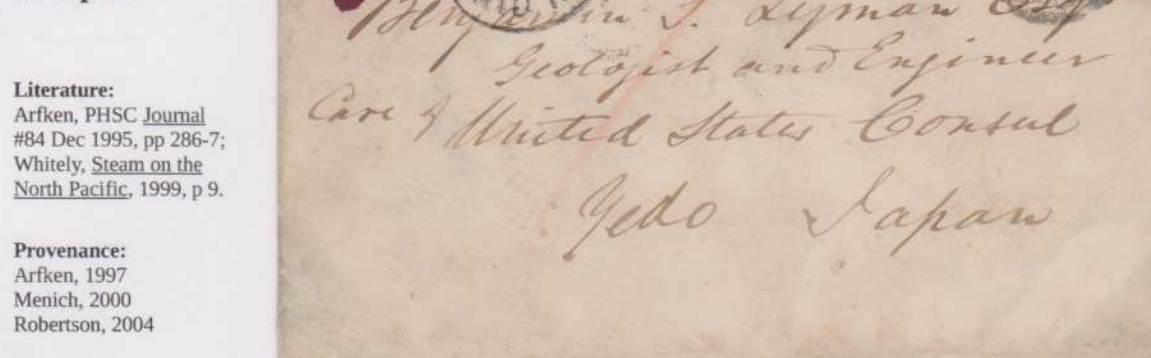 Literature:
Arfken, PHSC Journal
#84 Dec 1995, pp 286-7;
Whitely, Steam on the
North Pacific, 1999, p 9.
Provenance:
Arfken, 1997
Menich, 2000
Robertson, 2004
Benjamin S. Lyman Esq
Geologist and Engineer
Care of United States Consul
Yedo Japan